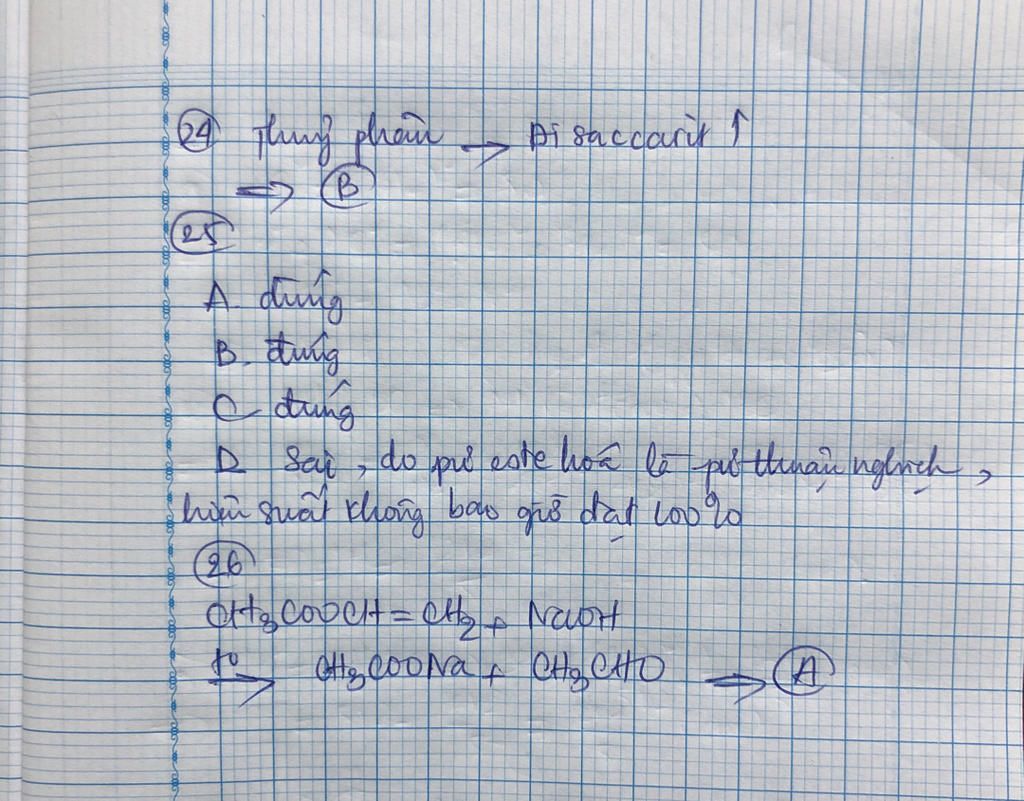 24 Thuỷ phân → Đisaccarit ↑
⇒ B
25
A. đúng
B. đúng
C đúng
D sai, do pư este hoá là pư thuận nghịch,
hiệu suất không bao giờ đạt 100%
26
CH3COOCH=CH2 + NaOH
t0→ CH3COONa + CH3CHO ⇒ A